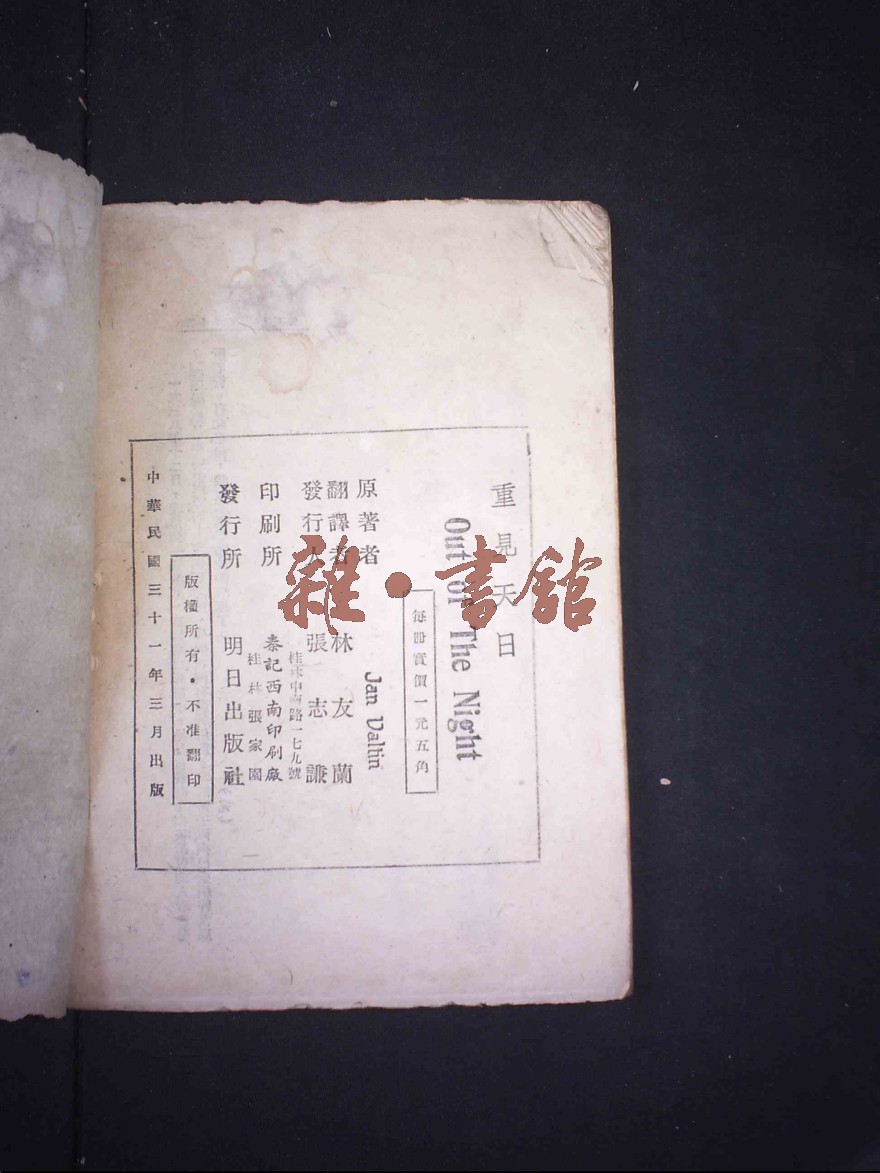 重見天日
Out of The Night
每册實價一元五角
原著者 Jan Valtin
翻譯者 林友蘭
發行人 張志謙
桂林中南路一七九號
印刷所 秦記西南印刷廠
桂林張家園
發行所 明日出版社
版權所有・不准翻印
中華民國三十一年三月出版
雜・書館